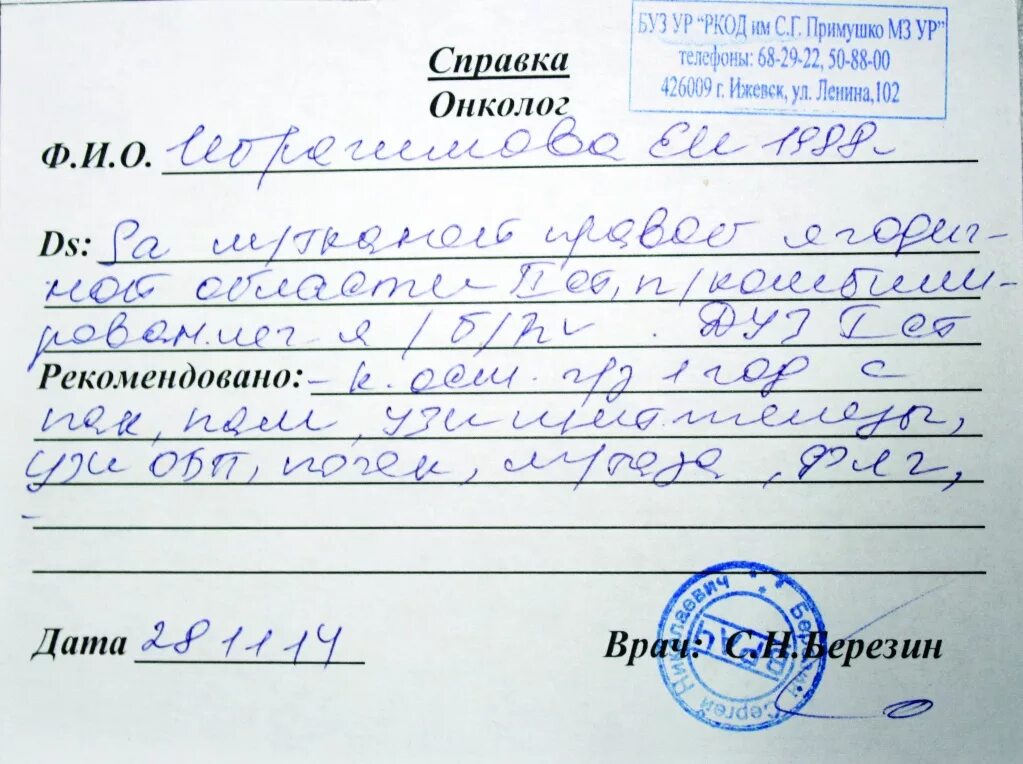 БУЗ УР "РКОД им С.Г. Примушко МЗ УР"
телефоны: 68-29-22, 50-88-00
426009 г. Ижевск, ул. Ленина,102
Справка
Онколог
Ф.И.О. Ибрагимова ЕИ 1988г
Ds: Sa м/тканой правой ягодич-
ной области II ст, п/комбини-
рован.леч-я /б/р/. ДУЗ I ст
Рекомендовано: - к. осм. ч/з 1 год с
оак, оам, узи щит.железы,
узи ОБП, почек, м/таза, ФЛГ,
-
Дата 28 11 14
Врач: С.Н.Березин
Березин Сергей Николаевич